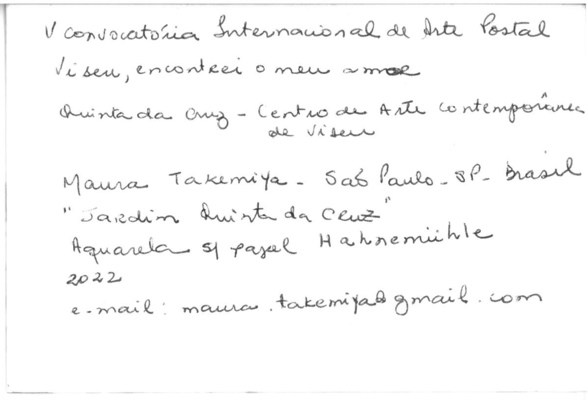 V Convocatória Internacional de Arte Postal
Viseu, encontrei o meu amor
Quinta da Cruz - Centro de Arte contemporânea
de Viseu
Maura Takemiya - São Paulo - SP - Brasil
"Jardim Quinta da Cruz"
Aquarela s/ papel Hahnemühle
2022
e-mail: maura.takemiya@gmail.com